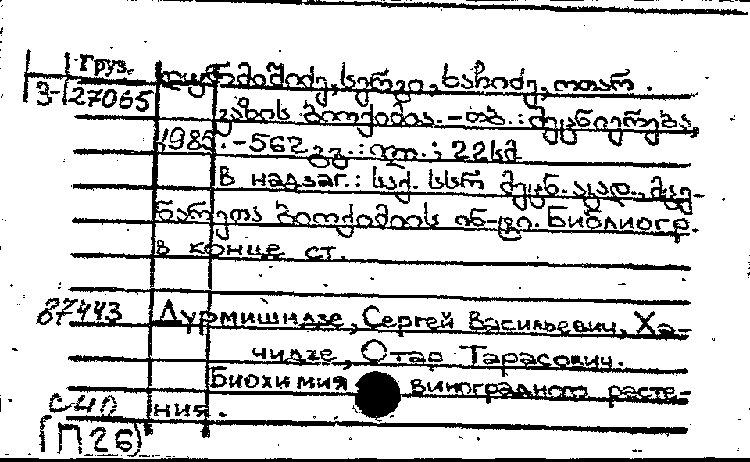 Груз.
დურმიშიძე, სერგი, ხაჩიძე, ოთარ.
3-27065
ვაზის ბიოქიმია. - თბ.: მეცნიერება,
1985. - 562 გვ.: ილ.; 22 სმ
В надзаг.: საქ. სსრ მეცნ. აკად., მცე-
ნარეთა ბიოქიმიის ინ-ტი. Библиогр.
в конце ст.
87443 Дурмишидзе, Сергей Васильевич, Ха-
чидзе, Отар Тарасович.
Биохимия виноградного расте-
с40 ния.
[П26]